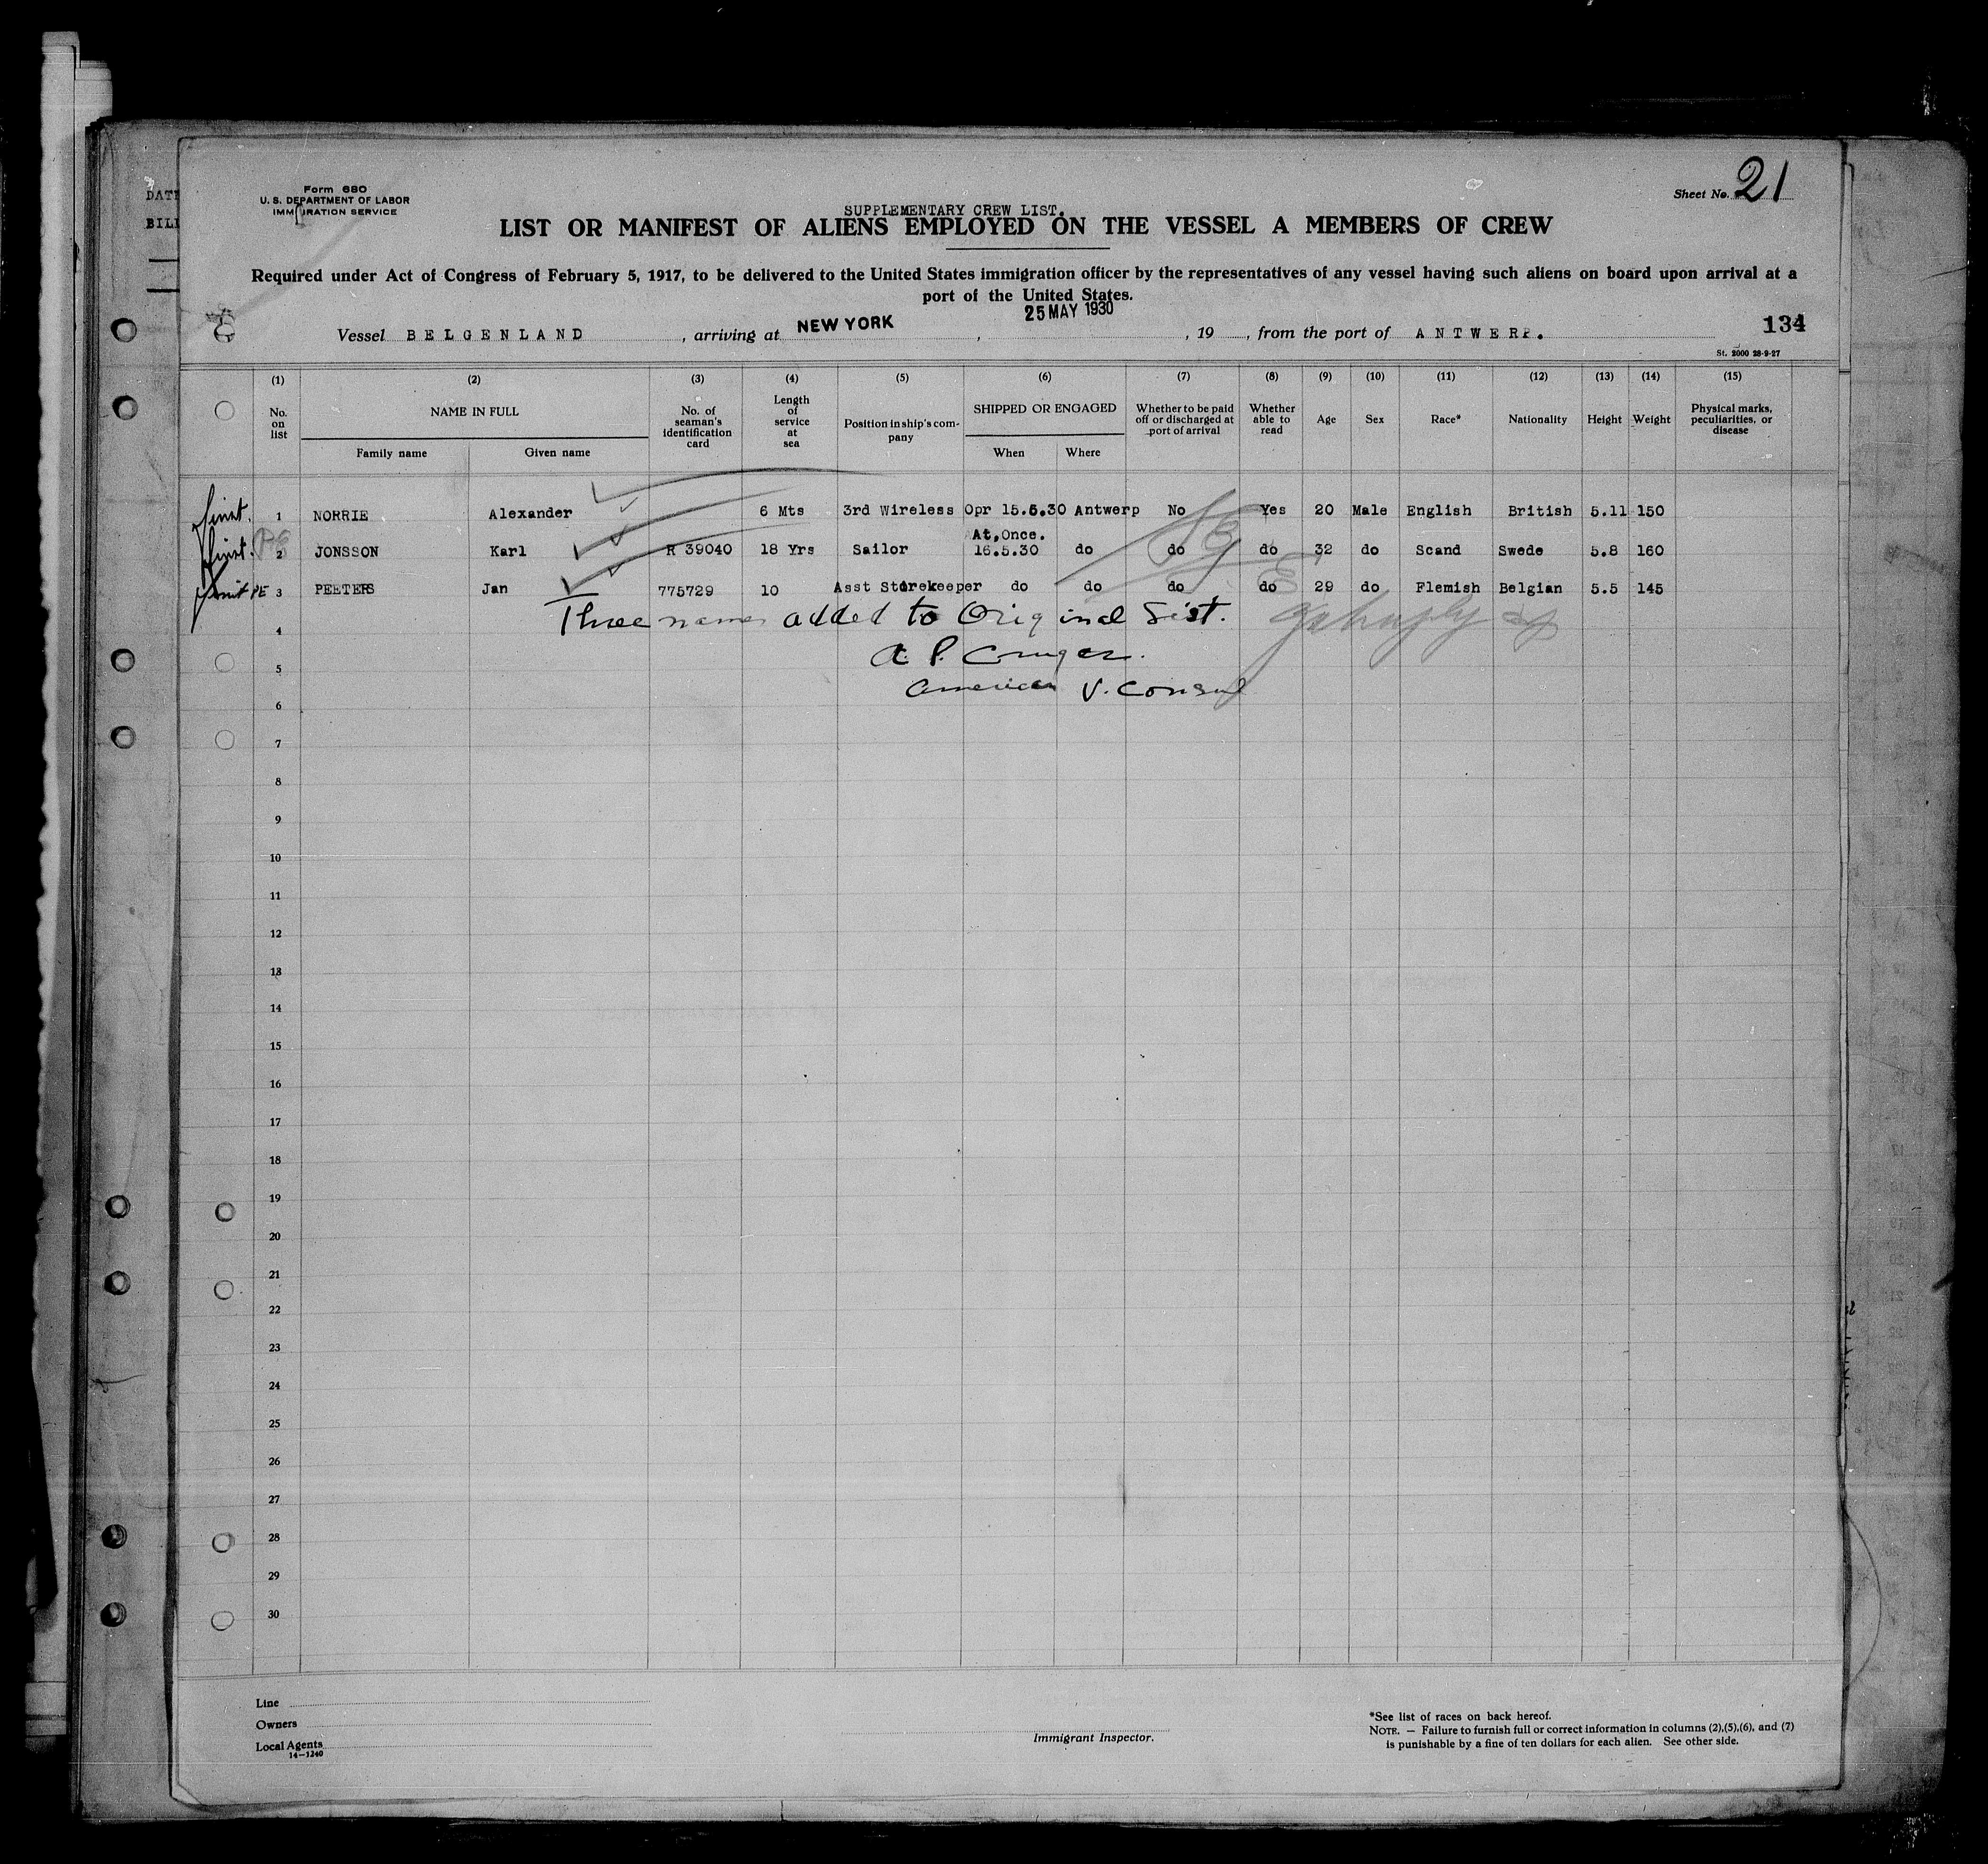 DATE
BILL
Form 680
U. S. DEPARTMENT OF LABOR
IMMIGRATION SERVICE
Sheet No. 21
SUPPLEMENTARY CREW LIST.
LIST OR MANIFEST OF ALIENS EMPLOYED ON THE VESSEL A MEMBERS OF CREW
Required under Act of Congress of February 5, 1917, to be delivered to the United States immigration officer by the representatives of any vessel having such aliens on board upon arrival at a
port of the United States.
25 MAY 1930
Vessel BELGENLAND, arriving at NEW YORK, , 19 , from the port of ANTWERP.
134
St. 2000 28-9-27
(1) (2) (3) (4) (5) (6) (7) (8) (9) (10) (11) (12) (13) (14) (15)
No. on list NAME IN FULL No. of seaman's identification card Length of service at sea Position in ship's company SHIPPED OR ENGAGED Whether to be paid off or discharged at port of arrival Whether able to read Age Sex Race* Nationality Height Weight Physical marks, peculiarities, or disease
Family name Given name When Where
first. 1 NORRIE Alexander 6 Mts 3rd Wireless Opr 15.5.30 Antwerp No Yes 20 Male English British 5.11 150
At,Once.
first. 2 JONSSON Karl R 39040 18 Yrs Sailor 16.5.30 do do do 32 do Scand Swede 5.8 160
PE 3 PEETERS Jan 775729 10 Asst Storekeeper do do do do 29 do Flemish Belgian 5.5 145
Three names added to Original List.
4
A. P. Cruger.
5
American V. Consul
6
7
8
9
10
11
12
13
14
15
16
17
18
19
20
21
22
23
24
25
26
27
28
29
30
Line
Owners
Local Agents
14-1240
Immigrant Inspector.
*See list of races on back hereof.
NOTE. — Failure to furnish full or correct information in columns (2),(5),(6), and (7)
is punishable by a fine of ten dollars for each alien. See other side.